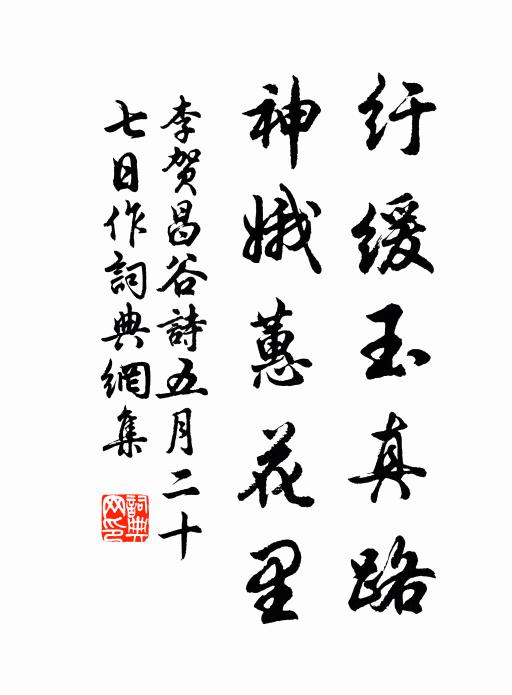 紆緩玉真路
神娥蕙花里
李賀昌谷詩五月二十
七日作詞典網集
詞典
网印